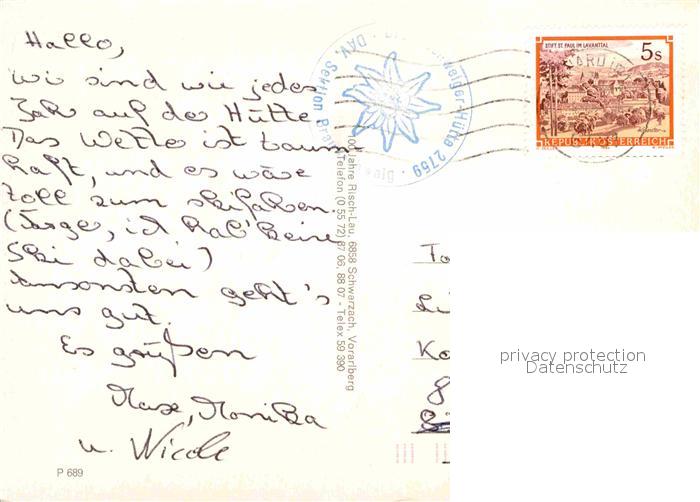 Hallo,
wir sind wie jedes
Jahr auf der Hütte.
Das Wetter ist traum-
haft, und es wäre
toll zum skifahren.
(Tanja, ich hab' keine
Ski dabei)
Ansonsten geht's
uns gut.
Es grüßen
Max, Monika
u. Nicole
P 689
100 Jahre Risch-Lau, 6858 Schwarzach, Vorarlberg
Telefon (0 55 72) 87 06, 88 07 - Telex 59 390
DAV. Sektion
Hütte 2759
STIFT ST. PAUL IM LAVANTTAL
5s
REPUBLIK ÖSTERREICH
privacy protection
Datenschutz